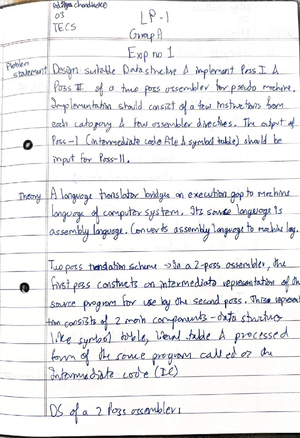 Aditya Chandratre
03
TECS
LP-1
Group A
Exp no 1
Problem statement
Design suitable Data structure & implement Pass I &
Pass II of a two pass assembler for pseudo machine.
Implementation should consist of a few instructions from
each category & few assembler directives. The output of
Pass-I (intermediate code file & symbol table) should be
input for Pass-II.
Theory
A language translator bridges an execution gap to machine
language of computer system. Its source language is
assembly language. Converts assembly language to machine lang.
Two pass translation scheme → In a 2-pass assembler, the
first pass constructs an intermediate representation of the
source program for use by the second pass. This represen
tion consists of 2 main components - data structure
like symbol table, literal table & processed
form of the source program called as the
intermediate code (IC)
DS of a 2 Pass assembler: